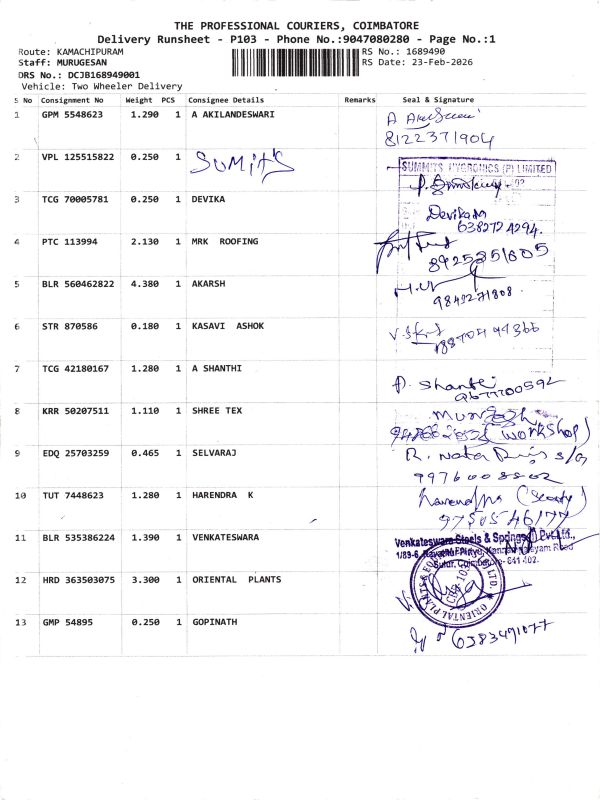 THE PROFESSIONAL COURIERS, COIMBATORE
Delivery Runsheet - P103 - Phone No.:9047080280 - Page No.:1
Route: KAMACHIPURAM RS No.: 1689490
Staff: MURUGESAN RS Date: 23-Feb-2026
DRS No.: DCJB168949001
Vehicle: Two Wheeler Delivery
S No Consignment No Weight PCS Consignee Details Remarks Seal & Signature
1 GPM 5548623 1.290 1 A AKILANDESWARI A
8122371904
2 VPL 125515822 0.250 1 SUMIT'S
SUMMITS HYGRONICS (P) LIMITED
3 TCG 70005781 0.250 1 DEVIKA Devikada
6382724294.
4 PTC 113994 2.130 1 MRK ROOFING
8925351605
5 BLR 560462822 4.380 1 AKARSH
9843271808
6 STR 870586 0.180 1 KASAVI ASHOK
7 TCG 42180167 1.280 1 A SHANTHI A. Shanthi
9677700592
8 KRR 50207511 1.110 1 SHREE TEX
(workshop)
9 EDQ 25703259 0.465 1 SELVARAJ R. Nata s/o
9976008802
10 TUT 7448623 1.280 1 HARENDRA K
9750546177
11 BLR 535386224 1.390 1 VENKATESWARA Venkateswara Steels & Springs (I) Pvt.Ltd.,
Sulur, Coimbatore - 641 402.
12 HRD 363503075 3.300 1 ORIENTAL PLANTS
ORIENTAL PLANTS & LTD.
13 GMP 54895 0.250 1 GOPINATH 6383491077